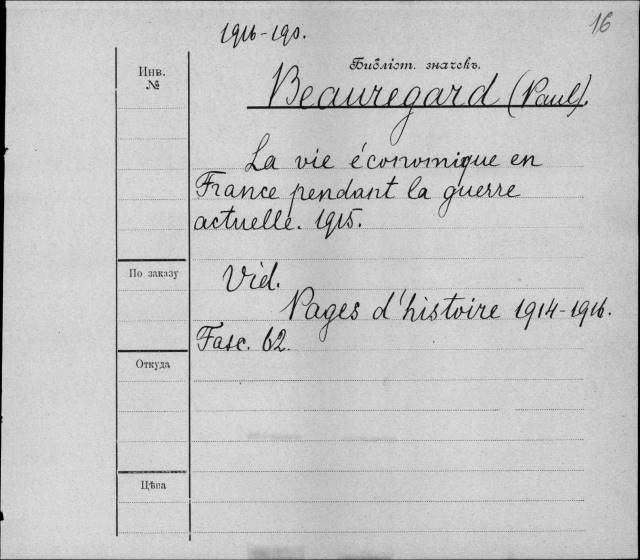 16
1916-190.
Инв.
№
Библіот. значекъ.
Beauregard (Paul).
La vie économique en
France pendant la guerre
actuelle. 1915.
По заказу
Vid.
Pages d'histoire 1914-1916.
Fasc. 62.
Откуда
Цѣна